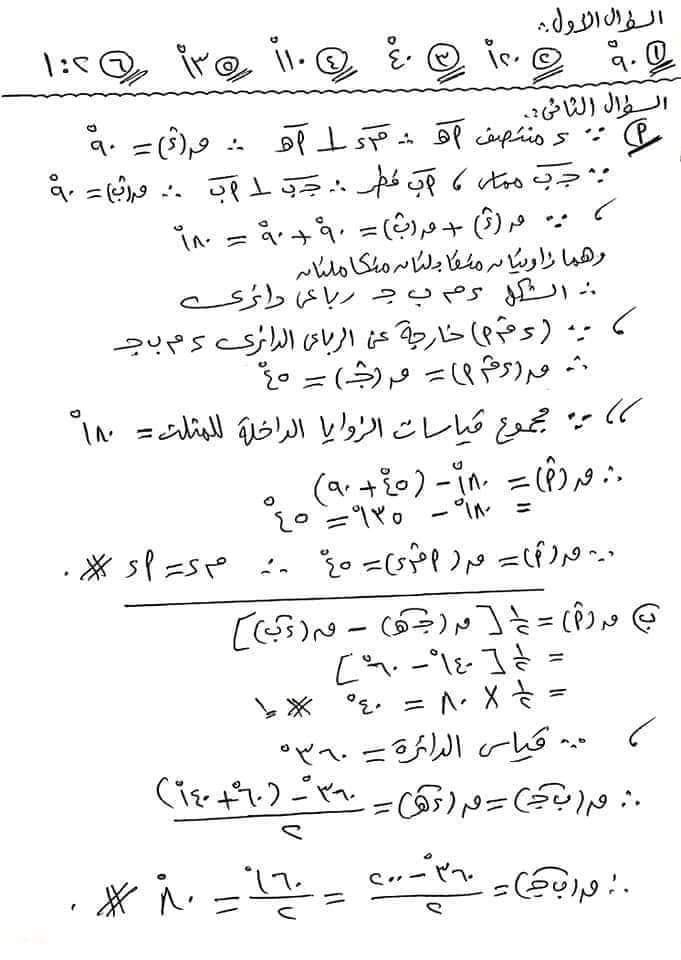 السؤال الأول :.
① ٩٠° ② ١٢٠° ③ ٤٠° ④ ١١٠° ⑤ ١٣° ⑥ ١:٢
السؤال الثانى :.
(أ) ∵ د منتصف أهـ ∴ مد ⊥ أهـ ∴ ق(د̂) = ٩٠°
∵ جـب مماس ، أب قطر ∴ جـب ⊥ أب ∴ ق(ب̂) = ٩٠°
، ∵ ق(د̂) + ق(ب̂) = ٩٠° + ٩٠° = ١٨٠°
وهما زاويتان متقابلتان متكاملتان
∴ الشكل د م ب جـ رباعى دائرى
، ∵ (د م̂ أ) خارجة عن الرباعى الدائرى د م ب جـ
∴ ق(د م̂ أ) = ق(جـ̂) = ٤٥°
،، ∵ مجموع قياسات الزوايا الداخلة للمثلث = ١٨٠°
∴ ق(أ̂) = ١٨٠° - (٤٥° + ٩٠)
= ١٨٠° - ١٣٥° = ٤٥°
∵ ق(أ̂) = ق(أ م̂ د) = ٤٥° ∴ م د = أ د # .
(ب) ق(أ̂) = ١/٢ [ق(جـهـ) - ق(دب)]
= ١/٢ [١٤٠° - ٦٠°]
= ١/٢ × ٨٠ = ٤٠° # ١
، ∵ قياس الدائرة = ٣٦٠°
∴ ق(ب جـ) = ق(دهـ) = (٣٦٠° - (٦٠° + ١٤٠°))/٢
∴ ق(ب جـ) = (٣٦٠° - ٢٠٠)/٢ = ١٦٠°/٢ = ٨٠° # .